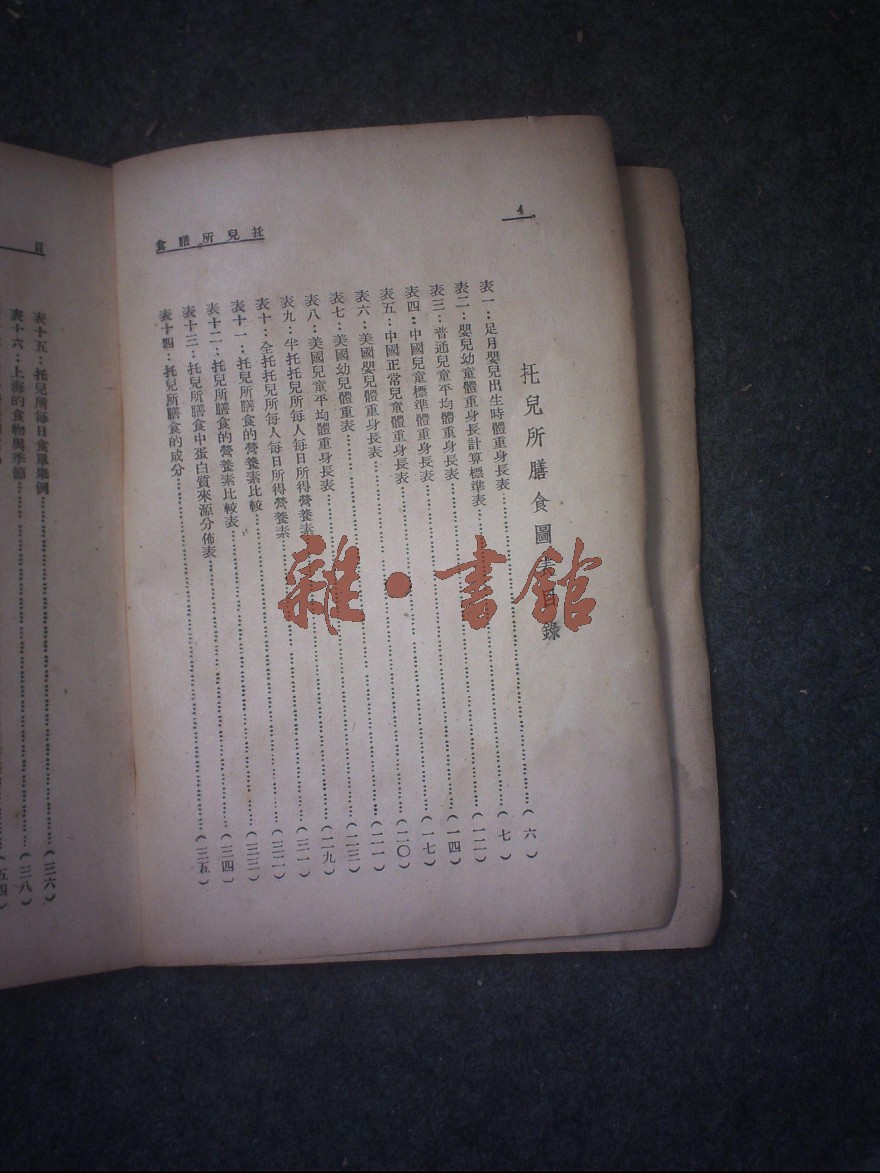 4
托兒所膳食
托兒所膳食圖表目錄
表一：足月嬰兒出生時體重身長表……(六)
表二：嬰兒幼童體重身長計算標準表……(七)
表三：普通兒童平均體重身長表……
表四：中國兒童標準體重身長表……(一四)
表五：中國正常兒童體重身長表……(一七)
表六：美國嬰兒體重身長表……(二〇)
表七：美國幼兒體重表……
表八：美國兒童平均體重身長表……
表九：半托托兒所每人每日所得營養素……(二九)
表十：全托托兒所每人每日所得營養素……(三一)
表十一：托兒所膳食的營養素比較……(三二)
表十二：托兒所膳食的營養素比較表……(三三)
表十三：托兒所膳食中蛋白質來源分佈表……(三四)
表十四：托兒所膳食的成分……(三五)
表十五：托兒所每日食單舉例……(三六)
表十六：上海的食物與季節……(三八)
(五四)
雜·書館